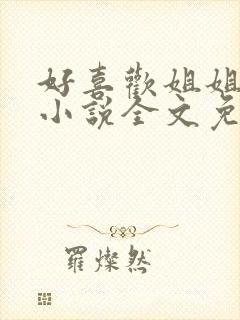 好喜歡姐姐
小說全文免
羅燦然